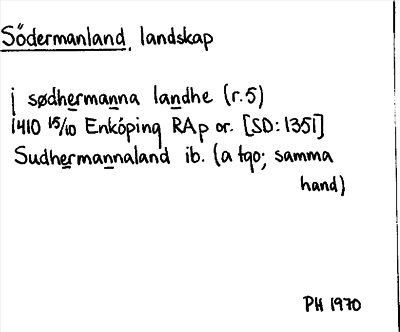 Södermanland, landskap
j sødhermanna landhe (r.5)
1410 15/10 Enköping RAp or. [SD: 1351]
Sudhermannaland ib. (a tgo; samma
hand)
PH 1970